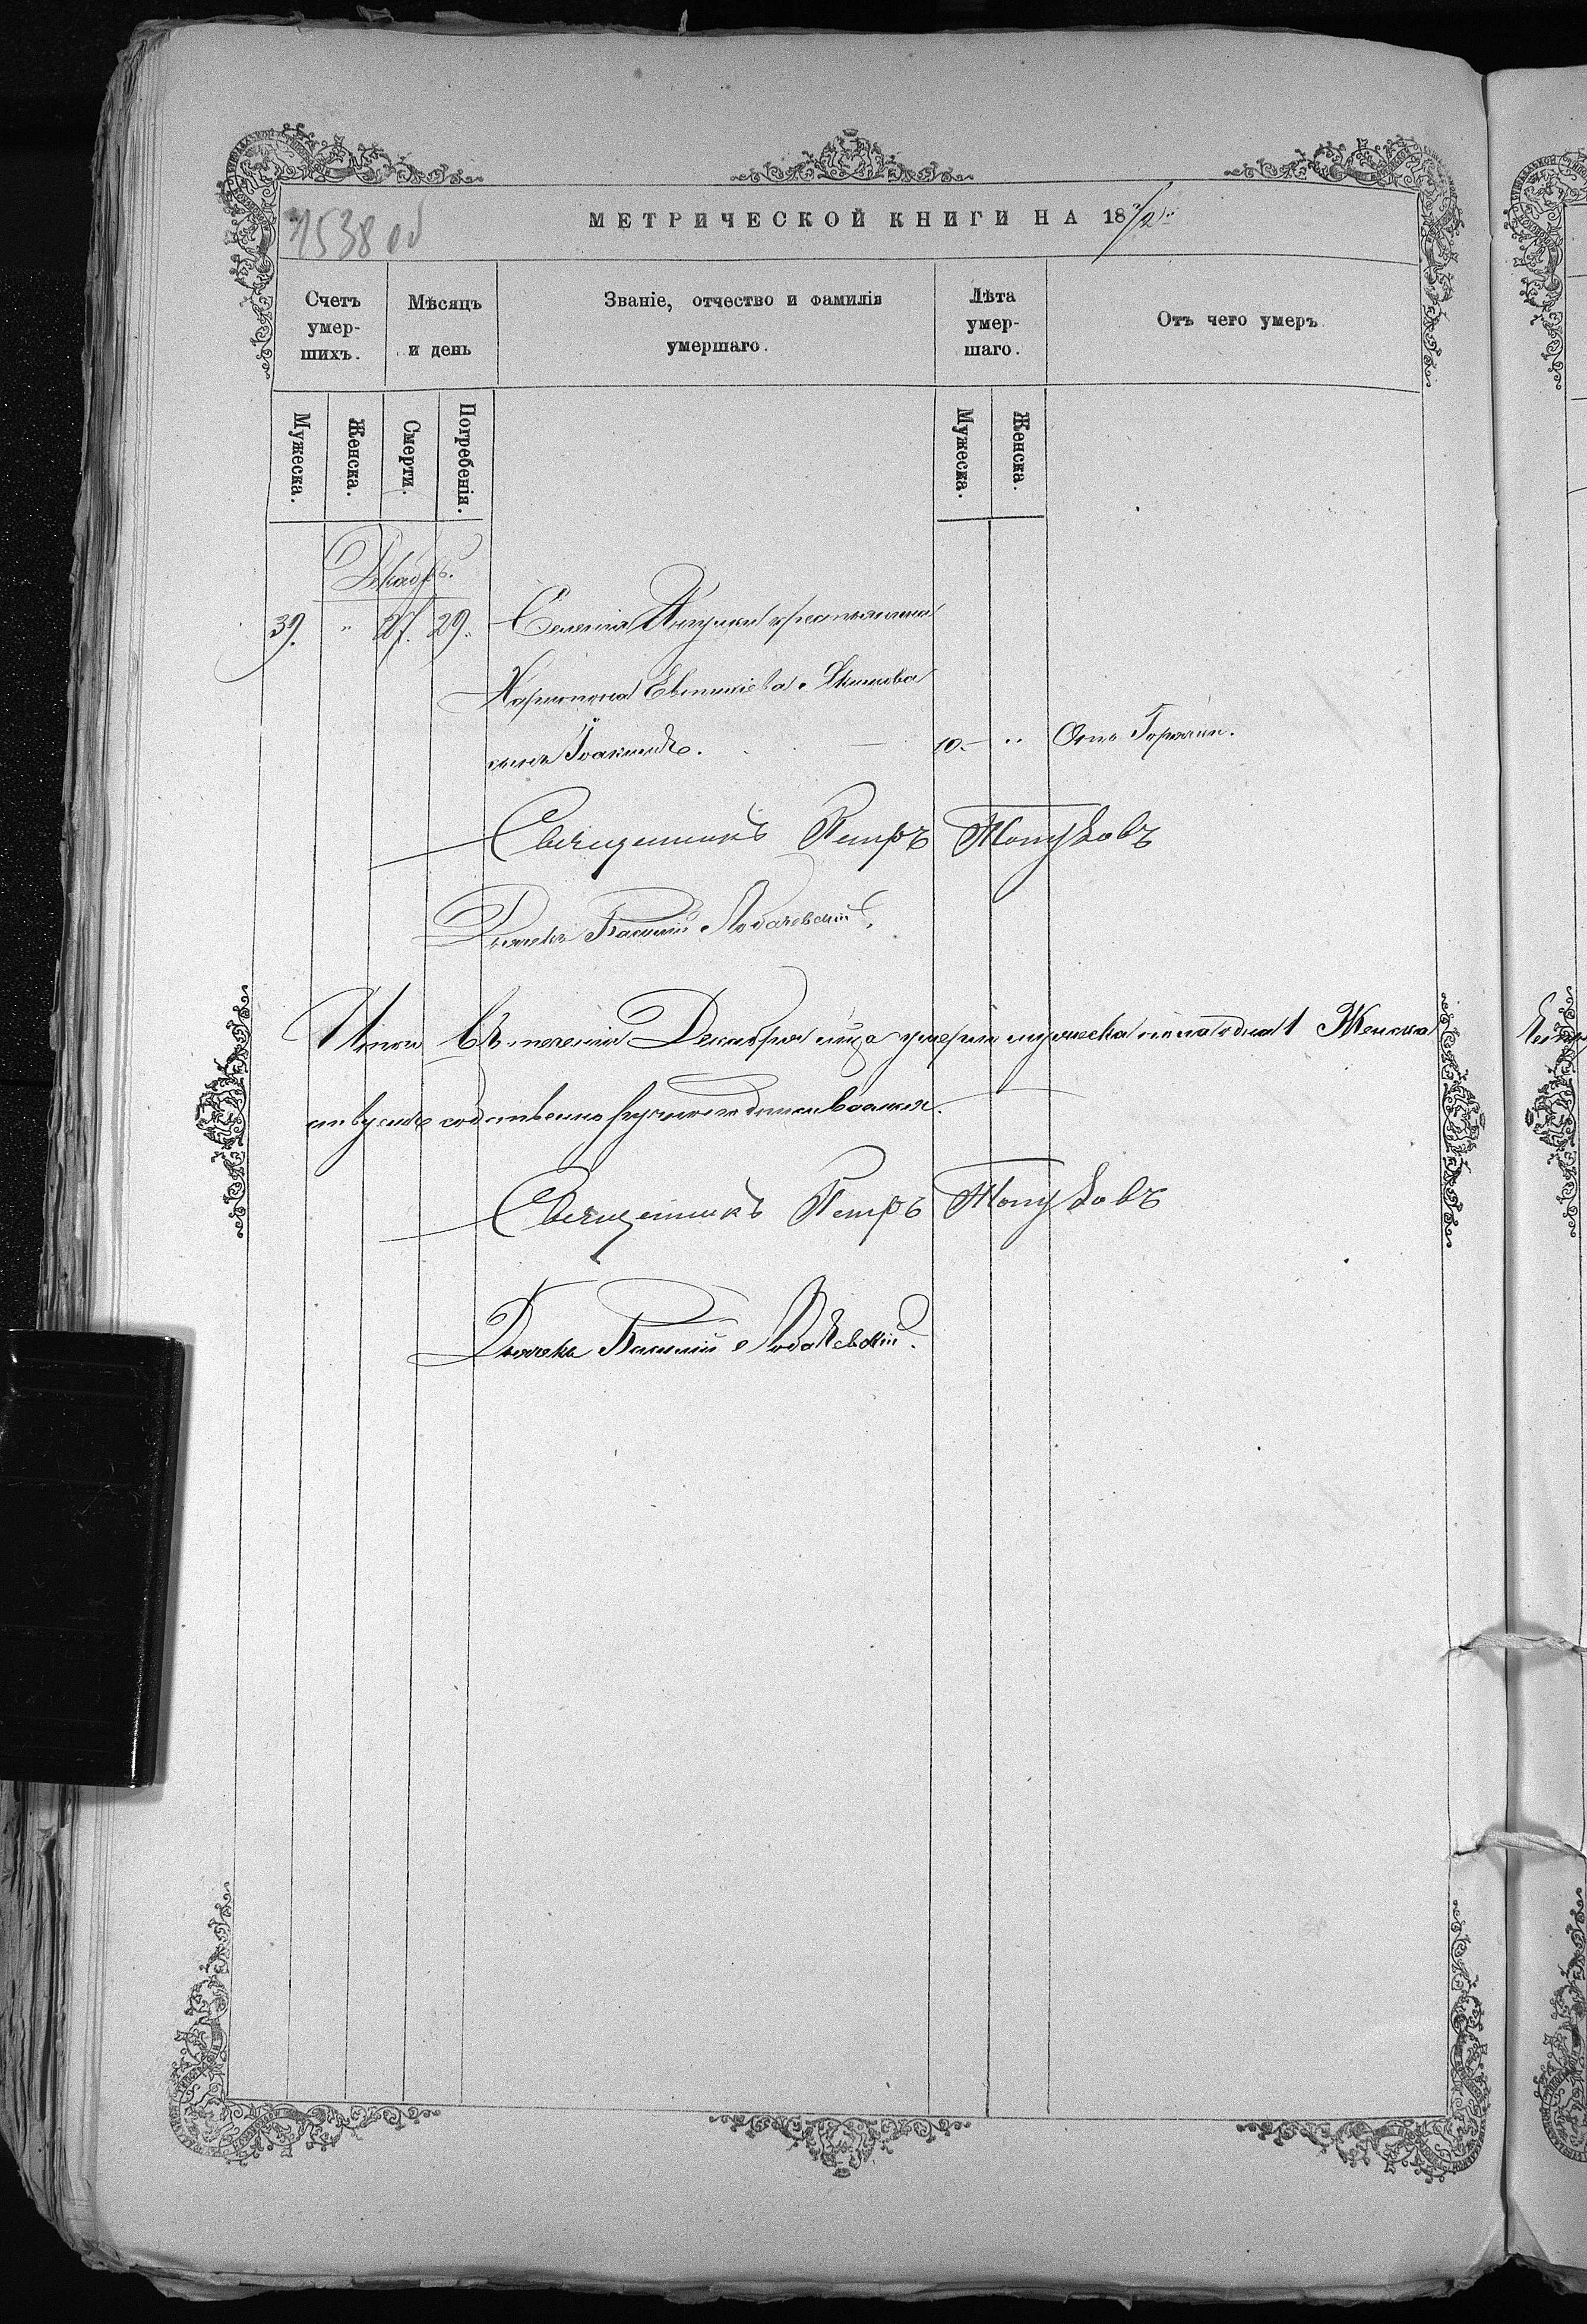 1538 об
МЕТРИЧЕСКОЙ КНИГИ НА 1872
Счетъ умер-шихъ.
Мѣсяцъ и день
Званіе, отчество и фамилія умершаго.
Лѣта умер-шаго.
Отъ чего умеръ
Мужеска.
Женска.
Смерти.
Погребенія.
Мужеска.
Женска.
Декабрь.
39. " 27. 29. Селенія крестьянина
Харитона Евтихіева
сынъ Іоакимъ. 10. " Отъ Горячки.
Священникъ Петръ
Дьячекъ Василій Лобачевскій.
Итого въ теченіи Декабря м-ца умерло мужеска пола одна 1 Женска
собственноручно подписываемся.
Священникъ Петръ
Дьячекъ Василій Лобачевскій.